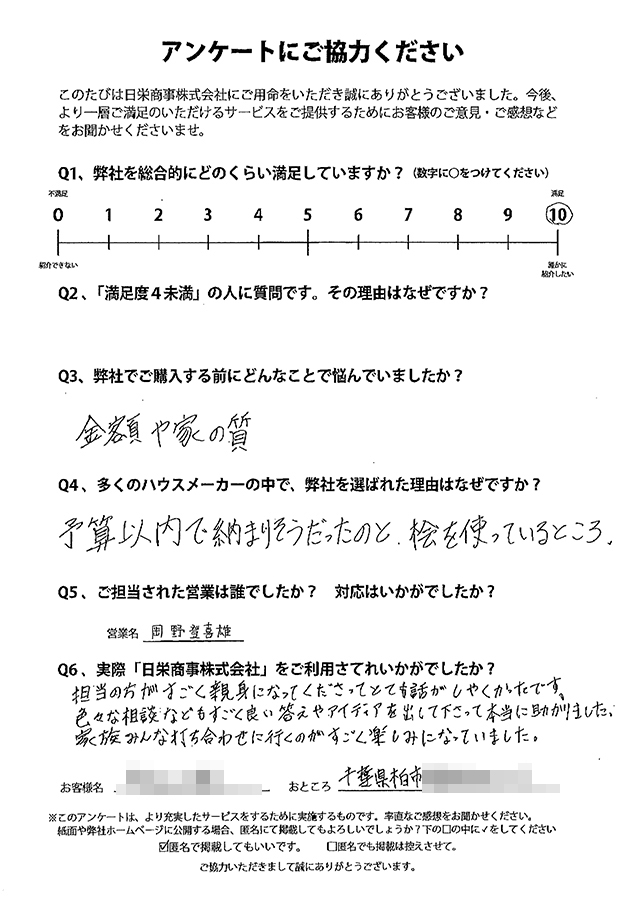 アンケートにご協力ください
このたびは日栄商事株式会社にご用命をいただき誠にありがとうございました。今後、
より一層ご満足のいただけるサービスをご提供するためにお客様のご意見・ご感想など
をお聞かせくださいませ。
Q1、弊社を総合的にどのくらい満足していますか？（数字に○をつけてください）
不満足 満足
0 1 2 3 4 5 6 7 8 9 10
紹介できない 誰かに
紹介したい
Q2、「満足度４未満」の人に質問です。その理由はなぜですか？
Q3、弊社でご購入する前にどんなことで悩んでいましたか？
金額や家の質
Q4、多くのハウスメーカーの中で、弊社を選ばれた理由はなぜですか？
予算以内で納まりそうだったのと、桧を使っているところ。
Q5、ご担当された営業は誰でしたか？ 対応はいかがでしたか？
営業名 岡野智喜雄
Q6、実際「日栄商事株式会社」をご利用さてれいかがでしたか？
担当の方がすごく親身になってくださってとても話がしやくかったです。
色々な相談などもすごく良い答えやアイディアを出して下さって本当に助かりました。
家族みんな打ち合わせに行くのがすごく楽しみになっていました。
お客様名 おところ 千葉県柏市
※このアンケートは、より充実したサービスをするために実施するものです。率直なご感想をお聞かせください。
紙面や弊社ホームページに公開する場合、匿名にて掲載してもよろしいでしょうか？下の□の中に✓をしてください
☑匿名で掲載してもいいです。 □匿名でも掲載は控えさせて。
ご協力いただきまして誠にありがとうございます。